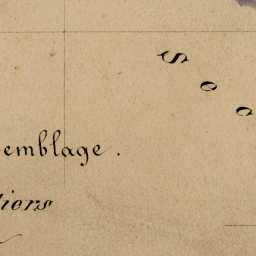 Soc
emblage.
tiers